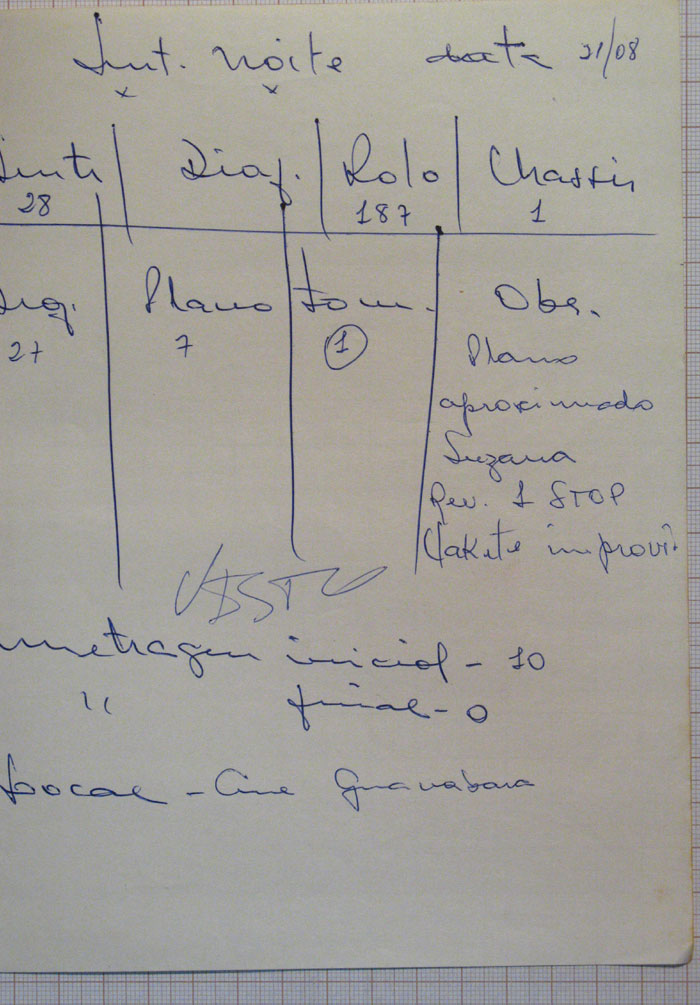 Int. Noite data 21/08
x x
Diaf. Rolo Chassis
28 187 1
Plano tom. Obs.
27 7 1 Plano
aproximado
Suzana
Rev. 1 STOP
Clakete improvi
VISTO
metragem inicial - 10
" final - 0
Local - Cine Guanabara